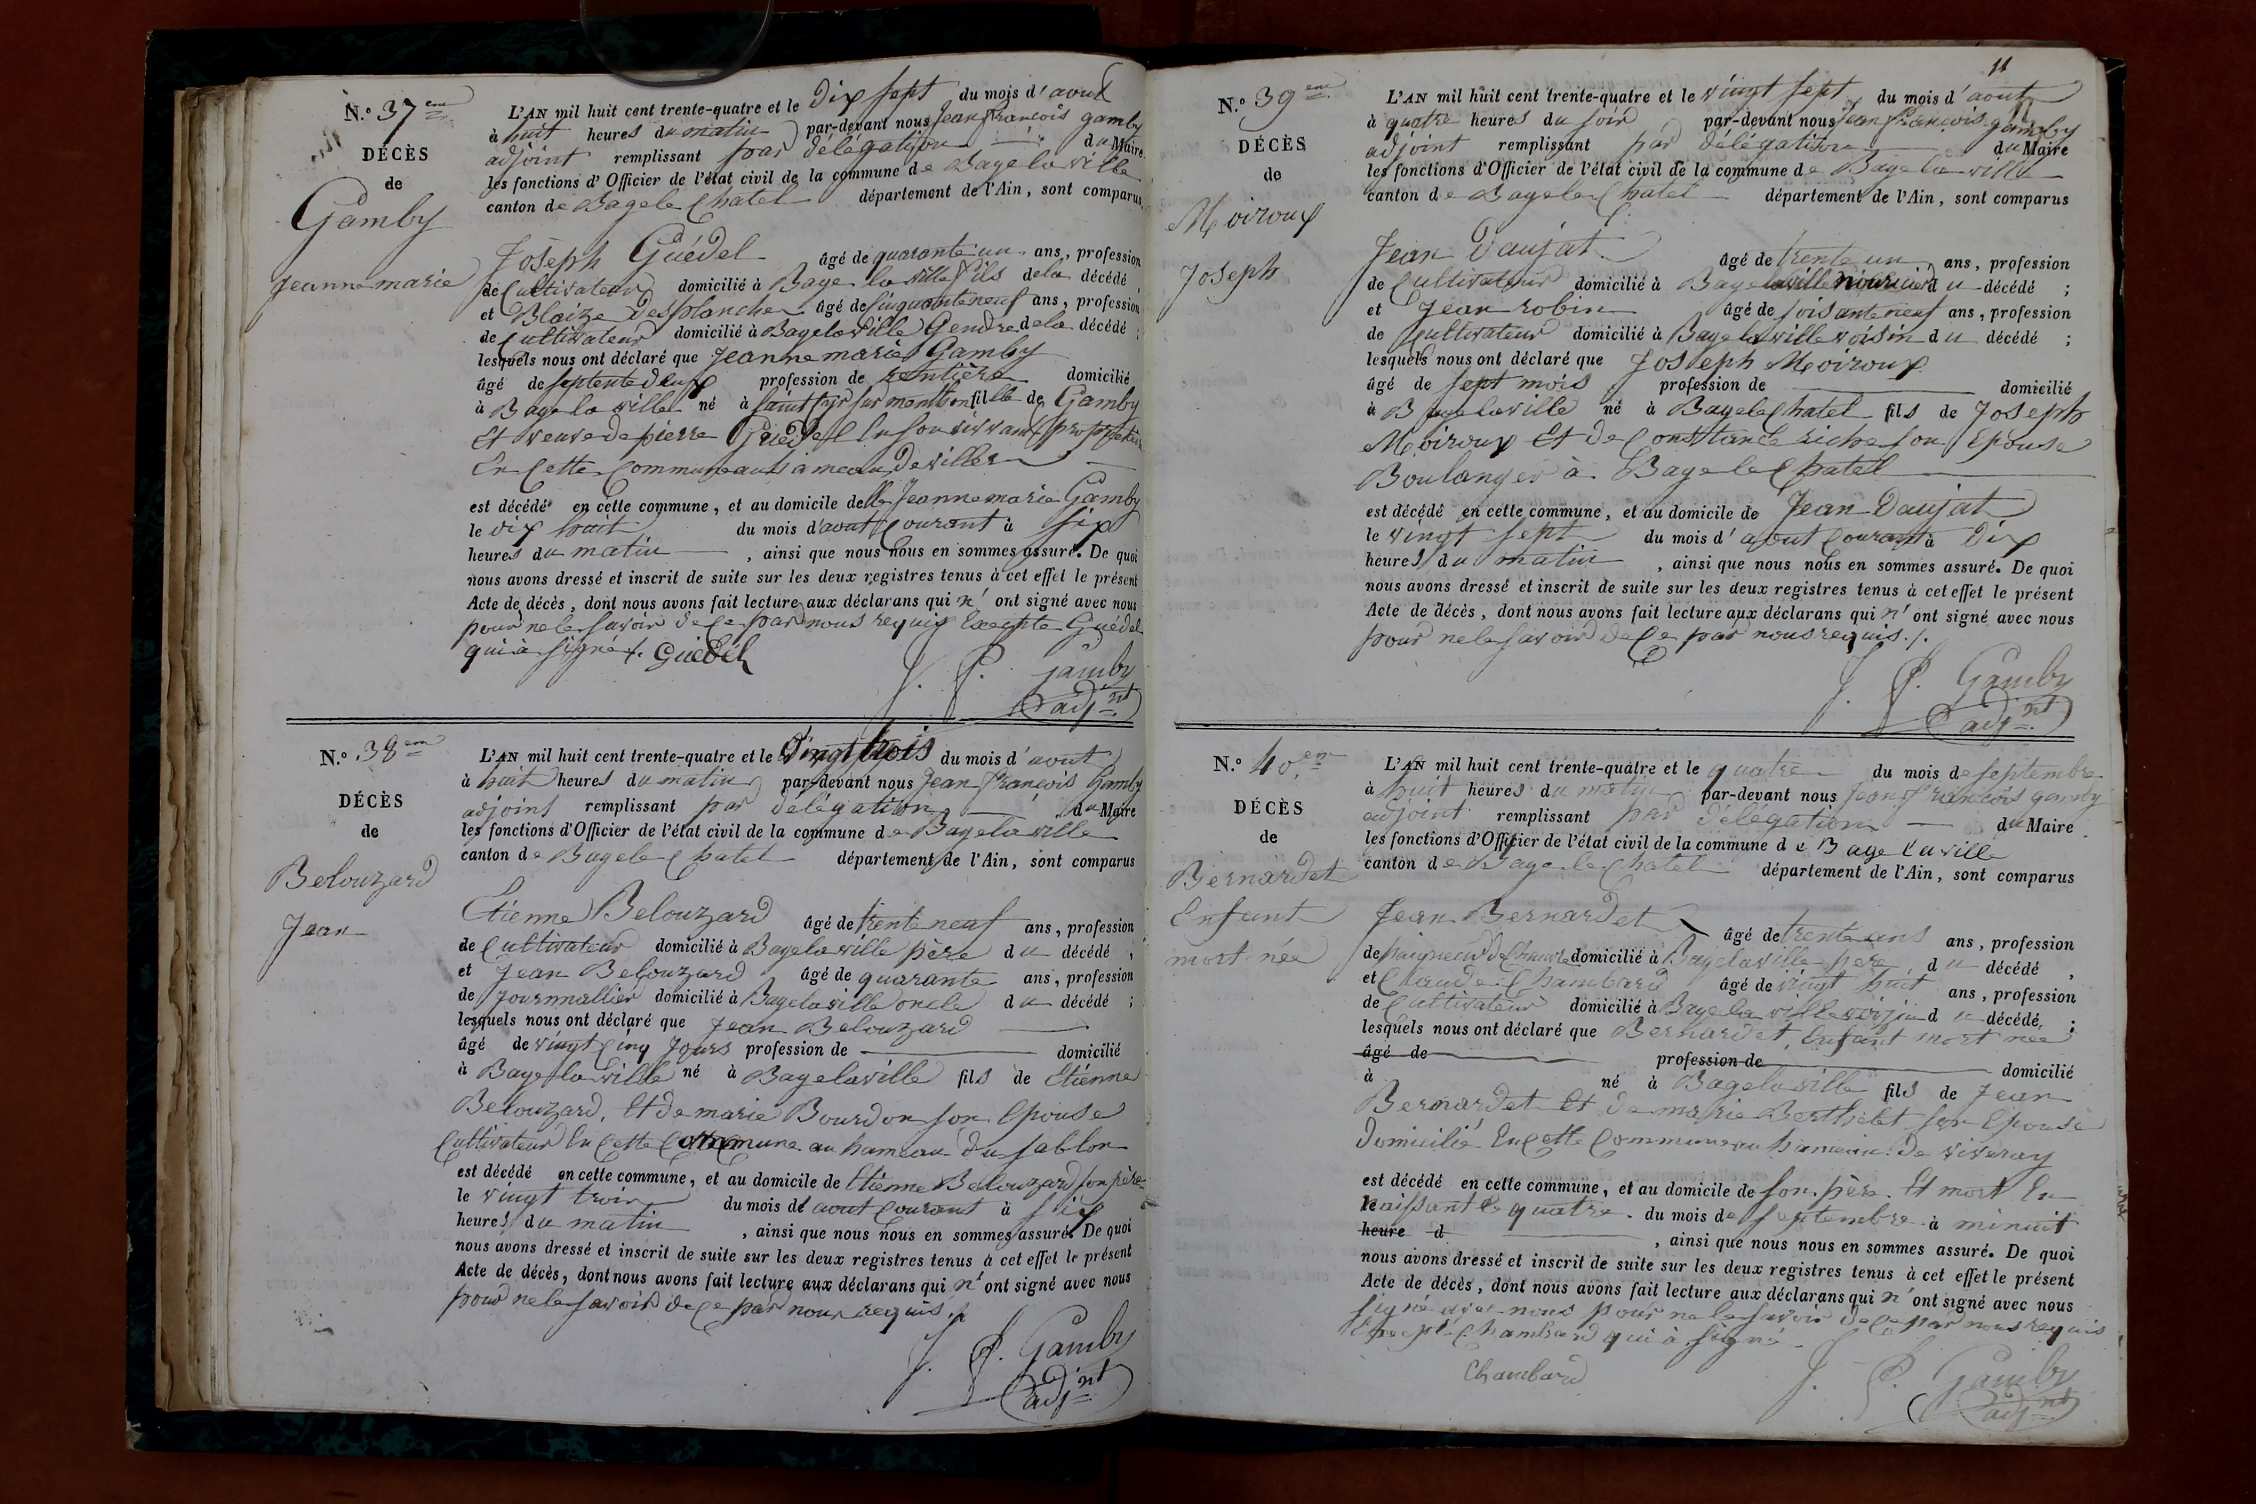 N.º 37 eme
DÉCÈS
de
Gamby
Jeanne marie
L'AN mil huit cent trente-quatre et le Dix sept du mois d'aout
à huit heures du matin par-devant nous Jean francois gamby
adjoint remplissant par délégation du Maire
les fonctions d'Officier de l'état civil de la commune de Bage la ville
canton de Bage le Chatel département de l'Ain, sont comparus
Joseph Guédel âgé de quarante un ans, profession
de Cultivateur domicilié à Bage la ville fils de la décédé
et Blaize Desplanche âgé de Cinquante neuf ans, profession
de Cultivateur domicilié à Bage la ville Gendre de la décédé ;
lesquels nous ont déclaré que Jeanne marie Gamby
âgé de septente deux profession de rentière domicilié
à Bage la ville né à saint Cyr sur menthon fille de Gamby
Et veuve de pierre Guédel
En Cette Commune
est décédé en cette commune, et au domicile de lle Jeanne marie Gamby
le dix huit du mois d'aout Courant à six
heures du matin , ainsi que nous nous en sommes assuré. De quoi
nous avons dressé et inscrit de suite sur les deux registres tenus à cet effet le présent
Acte de décès, dont nous avons fait lecture aux déclarans qui n' ont signé avec nous
pour ne le savoir de Ce par nous requis Excepte Guédel
qui à signé ./. Guedel
J. F. Gamby
adjnt
N.º 38 eme
DÉCÈS
de
Belouzard
Jean
L'AN mil huit cent trente-quatre et le Vingt trois du mois d'aout
à huit heures du matin par-devant nous Jean francois Gamby
adjoint remplissant par délégation du Maire
les fonctions d'Officier de l'état civil de la commune de Bage la ville
canton de Bage le Chatel département de l'Ain, sont comparus
Etienne Belouzard âgé de trente neuf ans, profession
de Cultivateur domicilié à Bage la ville père du décédé ;
et Jean Belouzard âgé de quarante ans, profession
de Journnallier domicilié à Bage la ville oncle du décédé ;
lesquels nous ont déclaré que Jean Belouzard
âgé de vingt Cinq Jours profession de domicilié
à Bage la ville né à Bage la ville fils de Etienne
Belouzard, Et de marie Bourdon son Epouse
Cultivateur En Cette Commune au hameau du sablon
est décédé en cette commune, et au domicile de Etienne Belouzard son père
le vingt trois du mois de aout Courant à six
heures du matin , ainsi que nous nous en sommes assuré. De quoi
nous avons dressé et inscrit de suite sur les deux registres tenus à cet effet le présent
Acte de décès, dont nous avons fait lecture aux déclarans qui n' ont signé avec nous
pour ne le savoir de Ce par nous requis ./.
J. F. Gamby
adjnt
11
N.º 39 eme
DÉCÈS
de
Moiroux
Joseph
L'AN mil huit cent trente-quatre et le vingt sept du mois d'aout
à quatre heures du soir par-devant nous Jean francois gamby
adjoint remplissant par délégation du Maire
les fonctions d'Officier de l'état civil de la commune de Bage la ville
canton de Bage le Chatel département de l'Ain, sont comparus
Jean Daujat âgé de trente un ans, profession
de Cultivateur domicilié à Bage la ville nouricier du décédé ;
et Jean robin âgé de soisante neuf ans, profession
de Cultivateur domicilié à Bage la ville voisin du décédé ;
lesquels nous ont déclaré que Joseph Moiroux
âgé de sept mois profession de domicilié
à Bage la ville né à Bage le Chatel fils de Joseph
Moiroux Et de Constance riche son Epouse
Boulanger à Bage le Chatel
est décédé en cette commune, et au domicile de Jean Daujat
le vingt sept du mois d'aout Courant à Dix
heures du matin , ainsi que nous nous en sommes assuré. De quoi
nous avons dressé et inscrit de suite sur les deux registres tenus à cet effet le présent
Acte de décès, dont nous avons fait lecture aux déclarans qui n' ont signé avec nous
pour ne le savoir de Ce par nous requis ./.
J. F. Gamby
adjnt
N.º 40 em
DÉCÈS
de
Bernardet
Enfant
mort née
L'AN mil huit cent trente-quatre et le quatre du mois de septembre
à huit heures du matin par-devant nous Jean francois gamby
adjoint remplissant par délégation du Maire
les fonctions d'Officier de l'état civil de la commune de Bage la ville
canton de Bage le Chatel département de l'Ain, sont comparus
Jean Bernardet âgé de trente ans ans, profession
de paigneur de Chanvre domicilié à Bage la ville père du décédé ,
et Claude Chambard âgé de vingt huit ans, profession
de Cultivateur domicilié à Bage la ville voisin du décédé ;
lesquels nous ont déclaré que Bernardet, Enfant mort née
âgé de profession de domicilié
à né à Bage la ville fils de Jean
Bernardet Et de marie Berthelet son Epouse
Domicilié En Cette Commune au hameau de viveray
est décédé en cette commune, et au domicile de son père Et mort En
naissant le quatre du mois de septembre à minuit
heure d , ainsi que nous nous en sommes assuré. De quoi
nous avons dressé et inscrit de suite sur les deux registres tenus à cet effet le présent
Acte de décès, dont nous avons fait lecture aux déclarans qui n' ont signé avec nous
signé avec nous pour ne le savoir de Ce par nous requis
Excepté Chambard qui à signé
Chambard
J. F. Gamby
adjnt